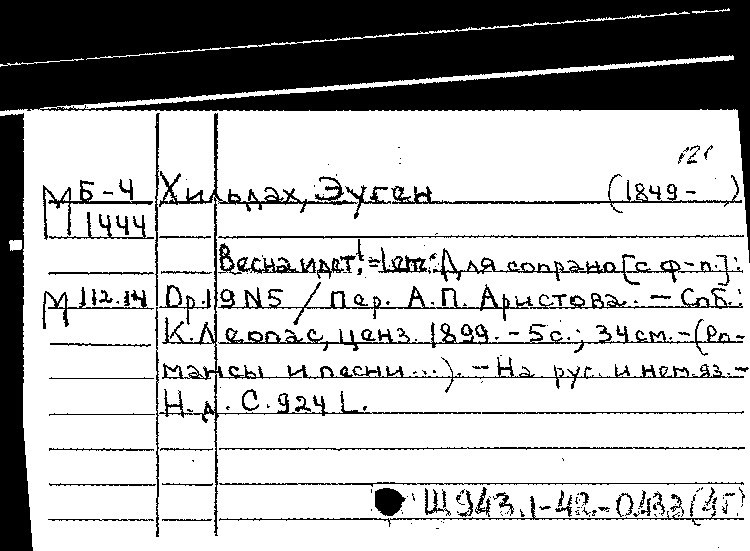 М Б-4 Хильдах, Эуген (1849- )
1444
Весна идет! = Lenz: Для сопрано [с ф-п.]:
М 112.14 Op.19 N5 / Пер. А.П. Аристова. - Спб.:
К. Леопас, ценз. 1899. - 5с.; 34см. - (Ро-
мансы и песни...). - На рус. и нем.яз. -
Н.д. С.924 L.
Щ943.1-42-0433(4Г)